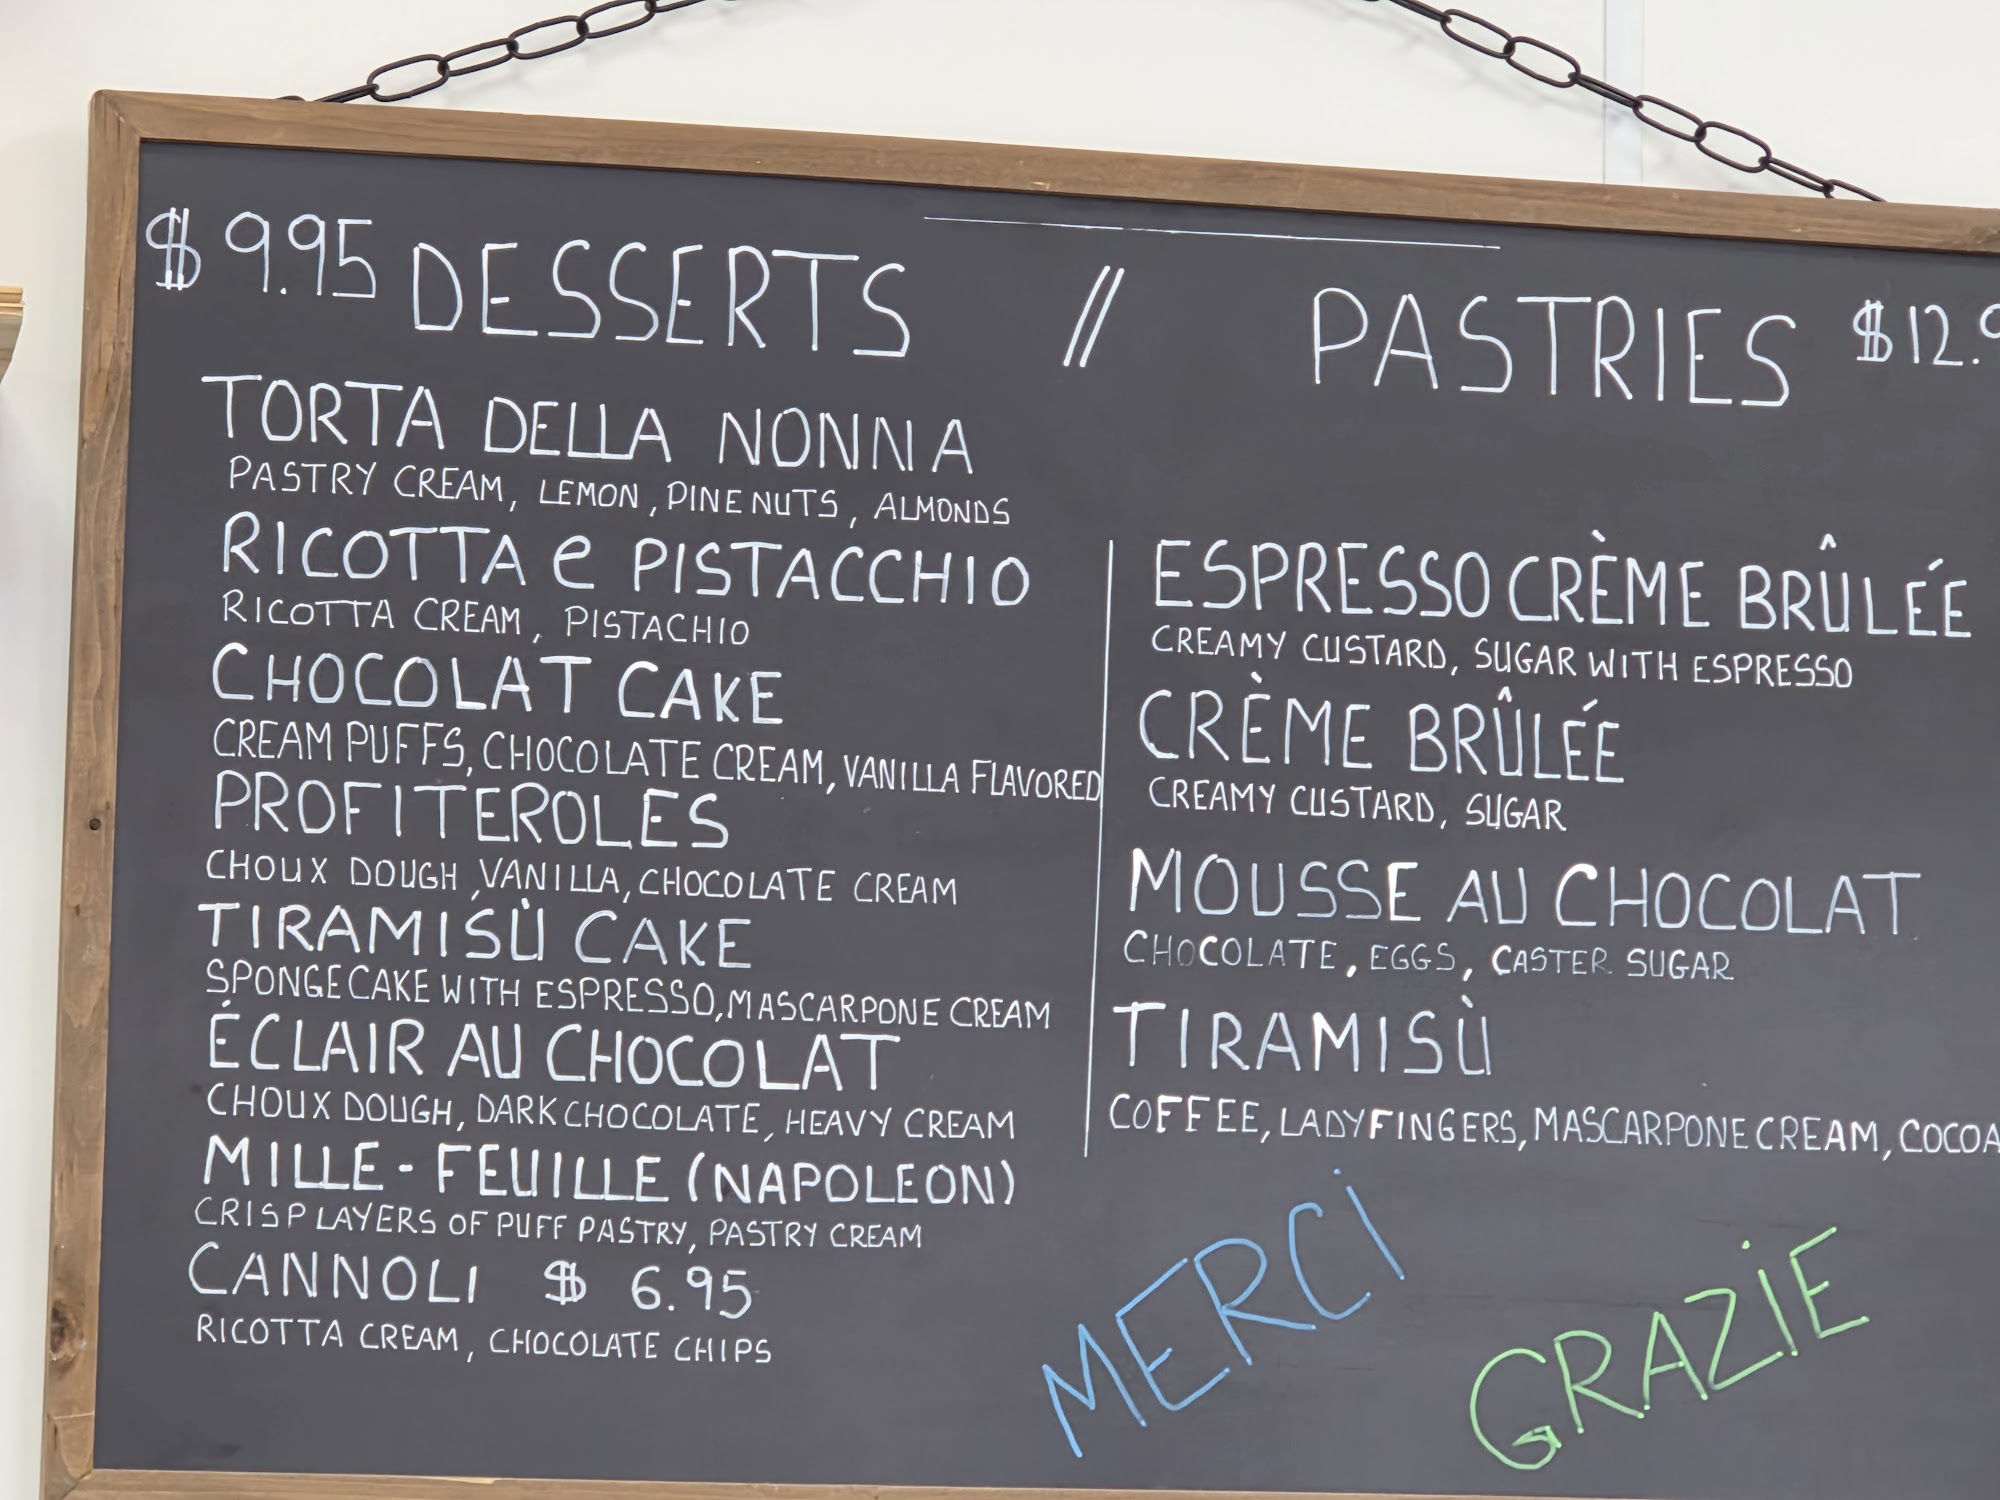 $9.95 DESSERTS // PASTRIES $12.9
TORTA DELLA NONNA
PASTRY CREAM, LEMON, PINE NUTS, ALMONDS
RICOTTA e PISTACCHIO
RICOTTA CREAM, PISTACHIO
CHOCOLAT CAKE
CREAM PUFFS, CHOCOLATE CREAM, VANILLA FLAVORED
PROFITEROLES
CHOUX DOUGH, VANILLA, CHOCOLATE CREAM
TIRAMISÙ CAKE
SPONGE CAKE WITH ESPRESSO, MASCARPONE CREAM
ÉCLAIR AU CHOCOLAT
CHOUX DOUGH, DARK CHOCOLATE, HEAVY CREAM
MILLE-FEUILLE (NAPOLEON)
CRISP LAYERS OF PUFF PASTRY, PASTRY CREAM
CANNOLI $ 6.95
RICOTTA CREAM, CHOCOLATE CHIPS
ESPRESSO CRÈME BRÛLÉE
CREAMY CUSTARD, SUGAR WITH ESPRESSO
CRÈME BRÛLÉE
CREAMY CUSTARD, SUGAR
MOUSSE AU CHOCOLAT
CHOCOLATE, EGGS, CASTER SUGAR
TIRAMISÙ
COFFEE, LADYFINGERS, MASCARPONE CREAM, COCOA
MERCI
GRAZIE